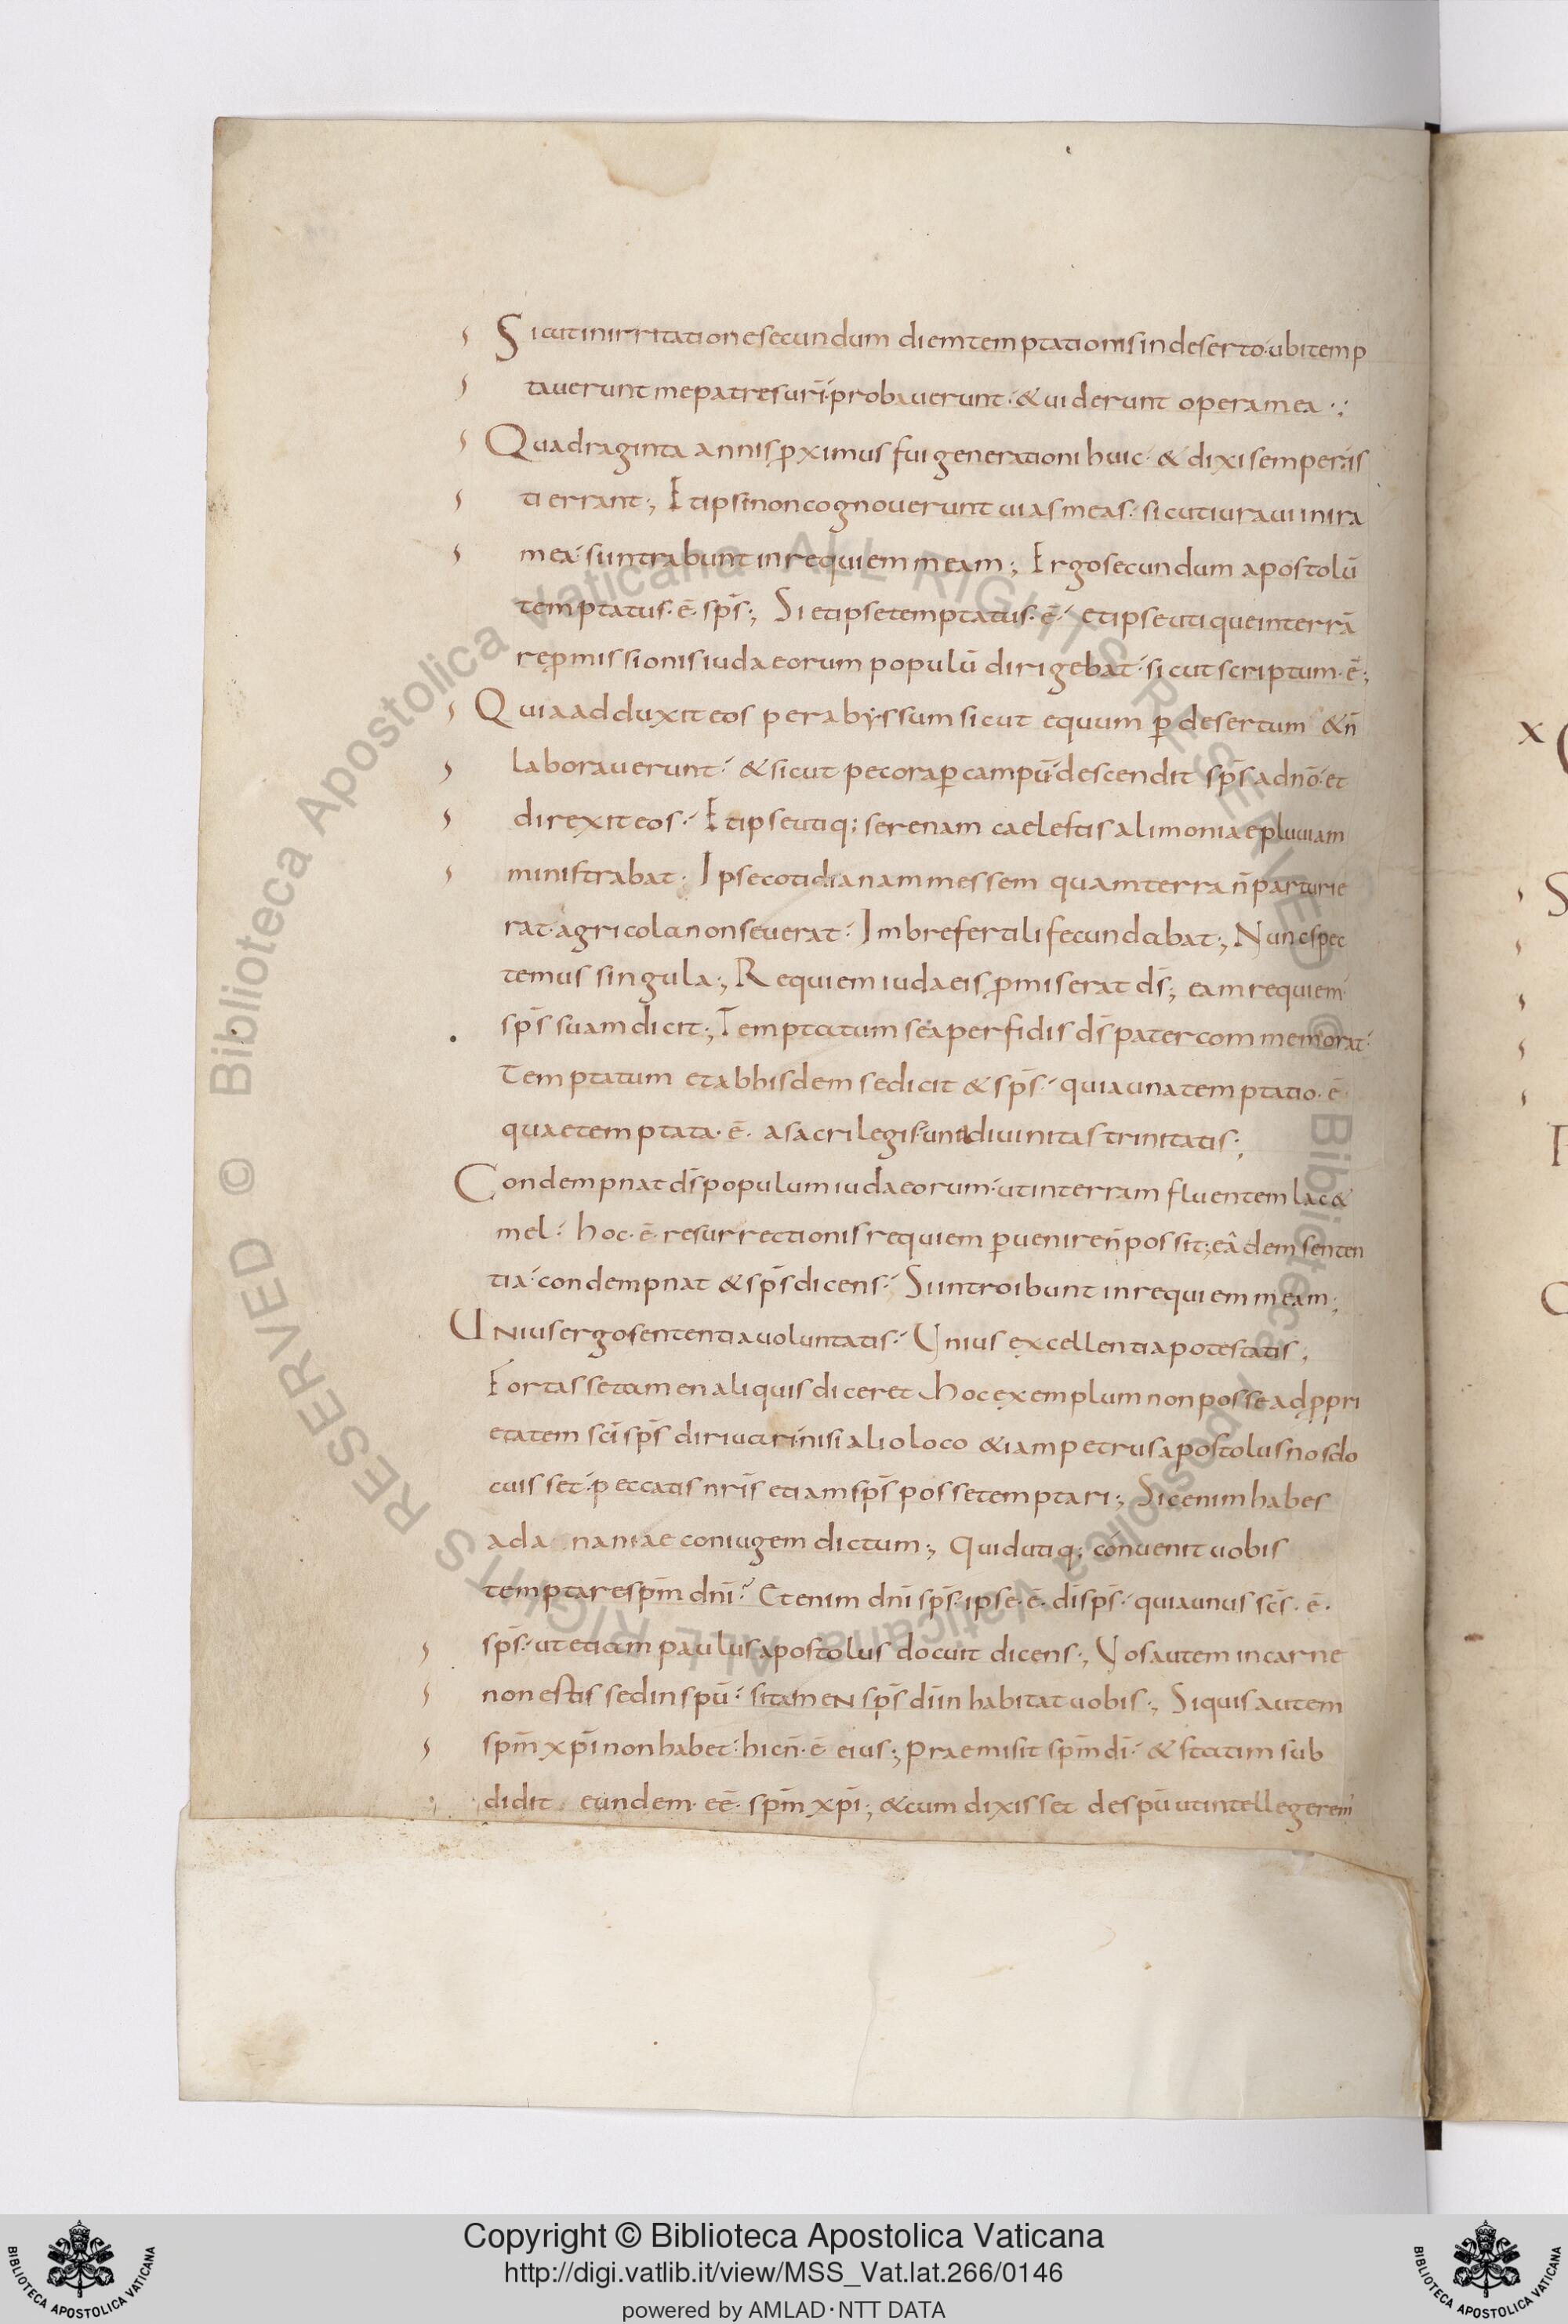 Sicut in irritatione secundum diem temptationis in deserto· ubi temp
taverunt me patres vr̄i· probaverunt· & viderunt opera mea·;
Quadraginta annis p̄ximus fui generationi huic· & dixi semper: is
ti errant·; Et ipsi non cognoverunt vias meas· sicut iuravi in ira
mea· si intrabunt in requiem meam·; Ergo secundum apostolū
temptatus· ē· sp̄s·; Si et ipse temptatus· ē· et ipse utique in terrā
rep̄missionis iudaeorum populū dirigebat· sicut scriptum· ē·;
Quia adduxit eos per abyssum sicut equum p̄ desertum & n̄
laboraverunt· & sicut pecora p̄ campū· descendit sp̄s a dn̄o· et
direxit eos· Et ipse utiq; serenam caelestis alimoniae pluviam
ministrabat· Ipse cotidianam messem quam terra n̄ parturie
rat· agricola non severat· Imbre fertili fecundabat·; Nunc spec
temus singula·; Requiem iudaeis p̄miserat d̄s; eam requiem
sp̄s suam dicit·; Temptatum se a perfidis d̄s pater commemorat·
Temptatum et ab hisdem se dicit & sp̄s· quia una temptatio· ē·
quae temptata· ē· a sacrilegis· una divinitas trinitatis·;
Condempnat d̄s populum iudaeorum· ut in terram fluentem lac &
mel· hoc· ē· resurrectionis requiem p̄venire n̄ possit; eâdem senten
tia· condempnat & sp̄s dicens· Si introibunt in requiem meam·;
Unius ergo sententia voluntatis· Unius excellentia potestatis·
Fortasse tamen aliquis diceret hoc exemplum non posse ad p̄pri
etatem sc̄i sp̄s dirivari· nisi alio loco &iam petrus apostolus nos do
cuisset· peccatis nr̄is etiam sp̄s posse temptari·; Sic enim habes
ad a naniae coniugem dictum·; Quid utiq; convenit vobis
temptare sp̄m dn̄i? Et enim dn̄i sp̄s· ipse· ē· d̄i sp̄s· quia unus sc̄s· ē·
sp̄s· ut etiam paulus apostolus docuit dicens·; Vos autem in carne
non estis sed in spū· si tamen sp̄s d̄i inhabitat vobis·; Si quis autem
sp̄m xp̄i non habet· hic n̄· ē· eius·; praemisit sp̄m d̄i· & statim sub
didit eundem· eē· sp̄m xp̄i·; & cum dixisset de spū ut intellegerem
X
Copyright © Biblioteca Apostolica Vaticana
http://digi.vatlib.it/view/MSS_Vat.lat.266/0146
powered by AMLAD·NTT DATA
BIBLIOTECA APOSTOLICA VATICANA
BIBLIOTECA APOSTOLICA VATICANA
© Biblioteca Apostolica Vaticana ALL RIGHTS RESERVED
© Biblioteca Apostolica Vaticana ALL RIGHTS RESERVED